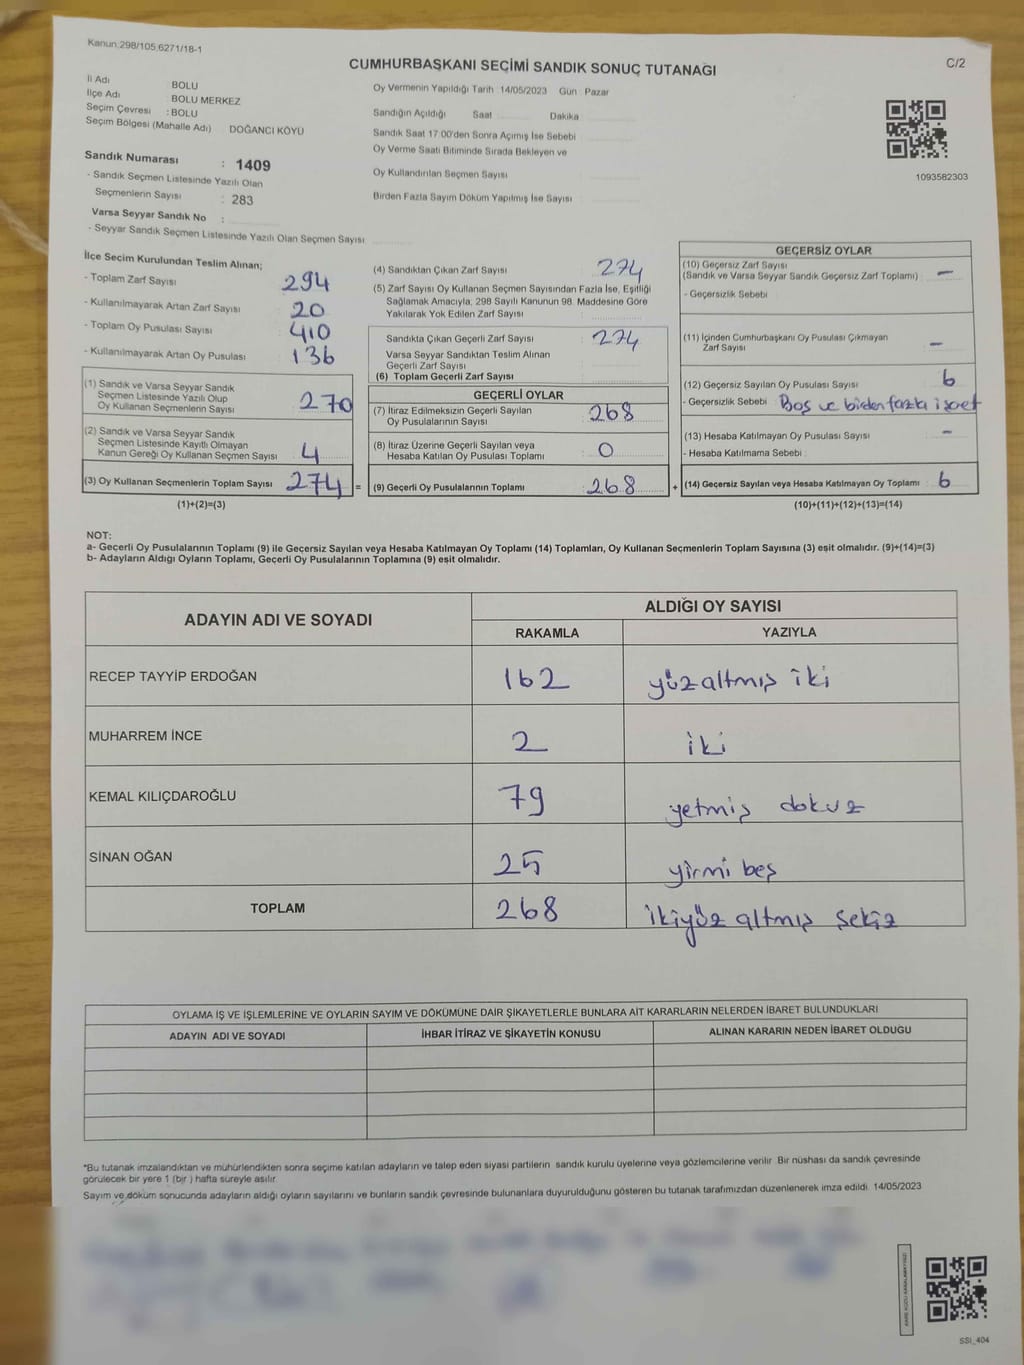 Kanun.298/105,6271/18-1
CUMHURBAŞKANI SEÇİMİ SANDIK SONUÇ TUTANAĞI
C/2
İl Adı BOLU
İlçe Adı BOLU MERKEZ
Seçim Çevresi : BOLU
Seçim Bölgesi (Mahalle Adı) DOĞANCI KÖYÜ
Sandık Numarası : 1409
- Sandık Seçmen Listesinde Yazılı Olan
Seçmenlerin Sayısı : 283
Varsa Seyyar Sandık No :
- Seyyar Sandık Seçmen Listesinde Yazılı Olan Seçmen Sayısı
Oy Vermenin Yapıldığı Tarih 14/05/2023 Gün : Pazar
Sandığın Açıldığı Saat Dakika
Sandık Saat 17.00'den Sonra Açımış İse Sebebi
Oy Verme Saati Bitiminde Sırada Bekleyen ve
Oy Kullandırılan Seçmen Sayısı
Birden Fazla Sayım Döküm Yapılmış İse Sayısı :
1093582303
İlçe Seçim Kurulundan Teslim Alınan;
- Toplam Zarf Sayısı 294
- Kullanılmayarak Artan Zarf Sayısı 20
- Toplam Oy Pusulası Sayısı 410
- Kullanılmayarak Artan Oy Pusulası 136
(1) Sandık ve Varsa Seyyar Sandık
Seçmen Listesinde Yazılı Olup
Oy Kullanan Seçmenlerin Sayısı 270
(2) Sandık ve Varsa Seyyar Sandık
Seçmen Listesinde Kayıtlı Olmayan
Kanun Gereği Oy Kullanan Seçmen Sayısı 4
(3) Oy Kullanan Seçmenlerin Toplam Sayısı 274 =
(1)+(2)=(3)
(4) Sandıktan Çıkan Zarf Sayısı 274
(5) Zarf Sayısı Oy Kullanan Seçmen Sayısından Fazla İse, Eşitliği
Sağlamak Amacıyla; 298 Sayılı Kanunun 98. Maddesine Göre
Yakılarak Yok Edilen Zarf Sayısı
Sandıkta Çıkan Geçerli Zarf Sayısı : 274
Varsa Seyyar Sandıktan Teslim Alınan
Geçerli Zarf Sayısı
(6) Toplam Geçerli Zarf Sayısı
GEÇERLİ OYLAR
(7) İtiraz Edilmeksizin Geçerli Sayılan
Oy Pusulalarının Sayısı 268
(8) İtiraz Üzerine Geçerli Sayılan veya
Hesaba Katılan Oy Pusulası Toplamı 0
(9) Geçerli Oy Pusulalarının Toplamı 268 +
GEÇERSİZ OYLAR
(10) Geçersiz Zarf Sayısı
(Sandık ve Varsa Seyyar Sandık Geçersiz Zarf Toplamı) : -
- Geçersizlik Sebebi
(11) İçinden Cumhurbaşkanı Oy Pusulası Çıkmayan
Zarf Sayısı -
(12) Geçersiz Sayılan Oy Pusulası Sayısı 6
- Geçersizlik Sebebi : Boş ve birden fazla işaret
(13) Hesaba Katılmayan Oy Pusulası Sayısı -
- Hesaba Katılmama Sebebi :
(14) Geçersiz Sayılan veya Hesaba Katılmayan Oy Toplamı 6
(10)+(11)+(12)+(13)=(14)
NOT:
a- Geçerli Oy Pusulalarının Toplamı (9) ile Geçersiz Sayılan veya Hesaba Katılmayan Oy Toplamı (14) Toplamları, Oy Kullanan Seçmenlerin Toplam Sayısına (3) eşit olmalıdır. (9)+(14)=(3)
b- Adayların Aldığı Oyların Toplamı, Geçerli Oy Pusulalarının Toplamına (9) eşit olmalıdır.
ADAYIN ADI VE SOYADI ALDIĞI OY SAYISI
RAKAMLA YAZIYLA
RECEP TAYYİP ERDOĞAN 162 yüzaltmış iki
MUHARREM İNCE 2 iki
KEMAL KILIÇDAROĞLU 79 yetmiş dokuz
SİNAN OĞAN 25 yirmi beş
TOPLAM 268 ikiyüz altmış sekiz
OYLAMA İŞ VE İŞLEMLERİNE VE OYLARIN SAYIM VE DÖKÜMÜNE DAİR ŞİKAYETLERLE BUNLARA AİT KARARLARIN NELERDEN İBARET BULUNDUKLARI
ADAYIN ADI VE SOYADI İHBAR İTİRAZ VE ŞİKAYETİN KONUSU ALINAN KARARIN NEDEN İBARET OLDUĞU
*Bu tutanak imzalandıktan ve mühürlendikten sonra seçime katılan adayların ve talep eden siyasi partilerin sandık kurulu üyelerine veya gözlemcilerine verilir. Bir nüshası da sandık çevresinde
görülecek bir yere 1 (bir ) hafta süreyle asılır.
Sayım ve döküm sonucunda adayların aldığı oyların sayılarını ve bunların sandık çevresinde bulunanlara duyurulduğunu gösteren bu tutanak tarafımızdan düzenlenerek imza edildi. 14/05/2023
SSI_404